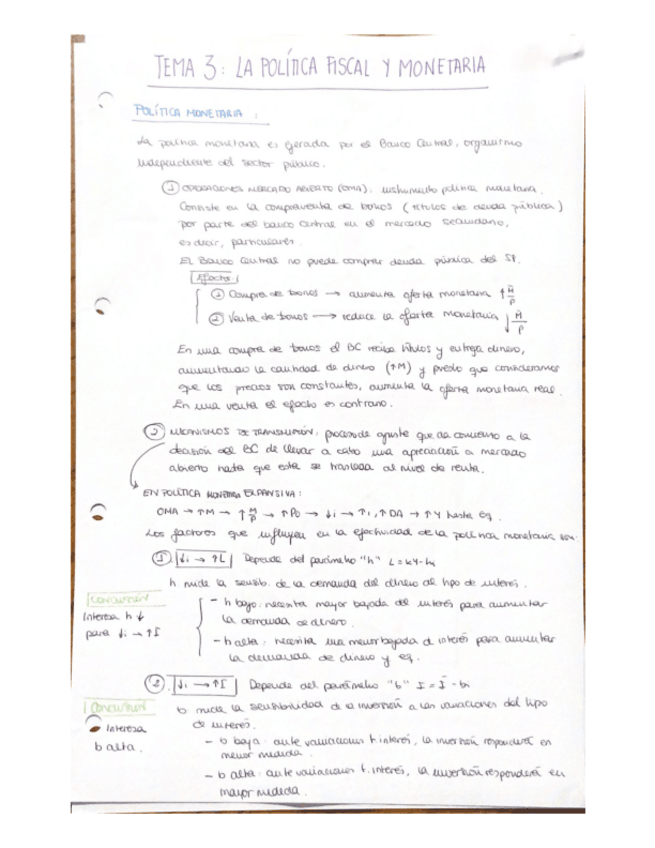 TEMA 3: LA POLÍTICA FISCAL Y MONETARIA
POLÍTICA MONETARIA:
La política monetaria es ejercida por el Banco Central, organismo
independiente del sector público.
① OPERACIONES MERCADO ABIERTO (OMA): instrumento política monetaria.
Consiste en la compraventa de bonos (títulos de deuda pública)
por parte del banco central en el mercado secundario,
es decir, particulares.
El Banco Central no puede comprar deuda pública del SP.
Efectos:
① Compra de bonos → aumenta oferta monetaria ↑ M/P
② Venta de bonos → reduce la oferta monetaria ↓ M/P
En una compra de bonos el BC recibe títulos y entrega dinero,
aumentando la cantidad de dinero (↑M) y puesto que consideramos
que los precios son constantes, aumenta la oferta monetaria real.
En una venta el efecto es contrario.
② MECANISMOS DE TRANSMISIÓN: proceso de ajuste que da comienzo a la
decisión del BC de llevar a cabo una operación a mercado
abierto hasta que esta se traslada al nivel de renta.
EN POLÍTICA MONETARIA EXPANSIVA:
OMA → ↑M → ↑ M/P → ↑Pb → ↓i → ↑I, ↑DA → ↑Y hasta eq.
Los factores que influyen en la efectividad de la política monetaria son:
① ↓i → ↑L Depende del parámetro "h" L = kY - hi
h mide la sensib. de la demanda del dinero al tipo de interés.
CONCLUSIÓN
Interesa h ↓
para ↓i → ↑I
- h bajo: necesita mayor bajada del interés para aumentar
la demanda de dinero.
- h alta: necesita una menor bajada d interés para aumentar
la demanda de dinero y eq.
②. ↓i → ↑I Depende del parámetro "b" I = Ī - bi
CONCLUSIÓN
Interesa
b alta.
b mide la sensibilidad de la inversión a las variaciones del tipo
de interés.
- b baja: ante variaciones t. interés, la inversión responderá en
menor medida.
- b alta: ante variaciones t. interés, la inversión responderá en
mayor medida.